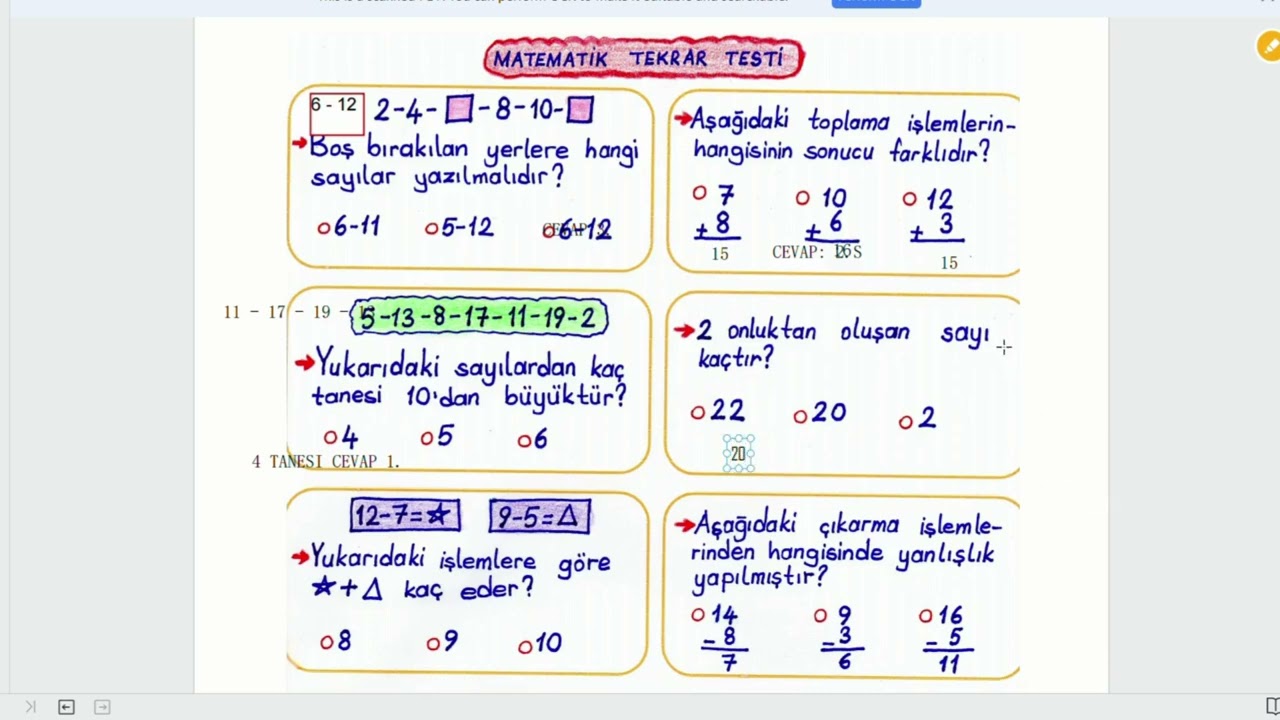 MATEMATİK TEKRAR TESTİ
6 - 12
2-4- -8-10-
Boş bırakılan yerlere hangi
sayılar yazılmalıdır?
6-11 5-12 6-12
Aşağıdaki toplama işlemlerin-
hangisinin sonucu farklıdır?
7 10 12
+ 8 + 6 + 3
15 CEVAP: 16 15
11 - 17 - 19 -
5-13-8-17-11-19-2
Yukarıdaki sayılardan kaç
tanesi 10'dan büyüktür?
4 5 6
4 TANESI CEVAP 1.
2 onluktan oluşan sayı
kaçtır?
22 20 2
20
12-7=★ 9-5=△
Yukarıdaki işlemlere göre
★+△ kaç eder?
8 9 10
Aşağıdaki çıkarma işlemle-
rinden hangisinde yanlışlık
yapılmıştır?
14 9 16
- 8 - 3 - 5
7 6 11